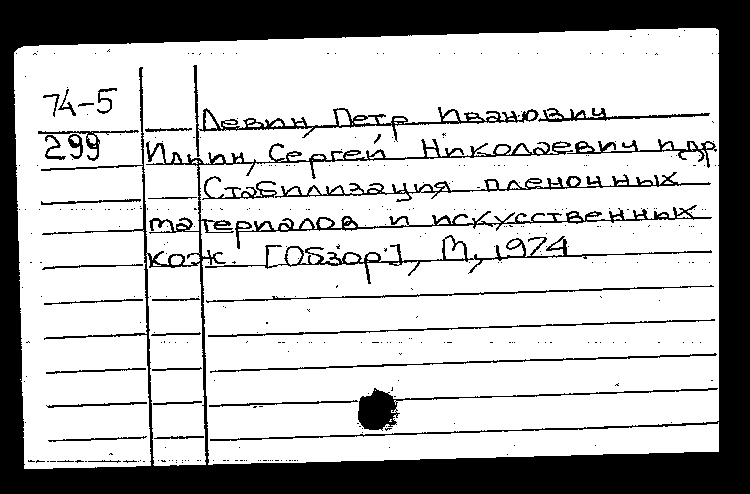 74-5
299
Левин, Петр Иванович
Ильин, Сергей Николаевич и др
Стабилизация пленочных
материалов и искусственных
кож. [Обзор], М., 1974.